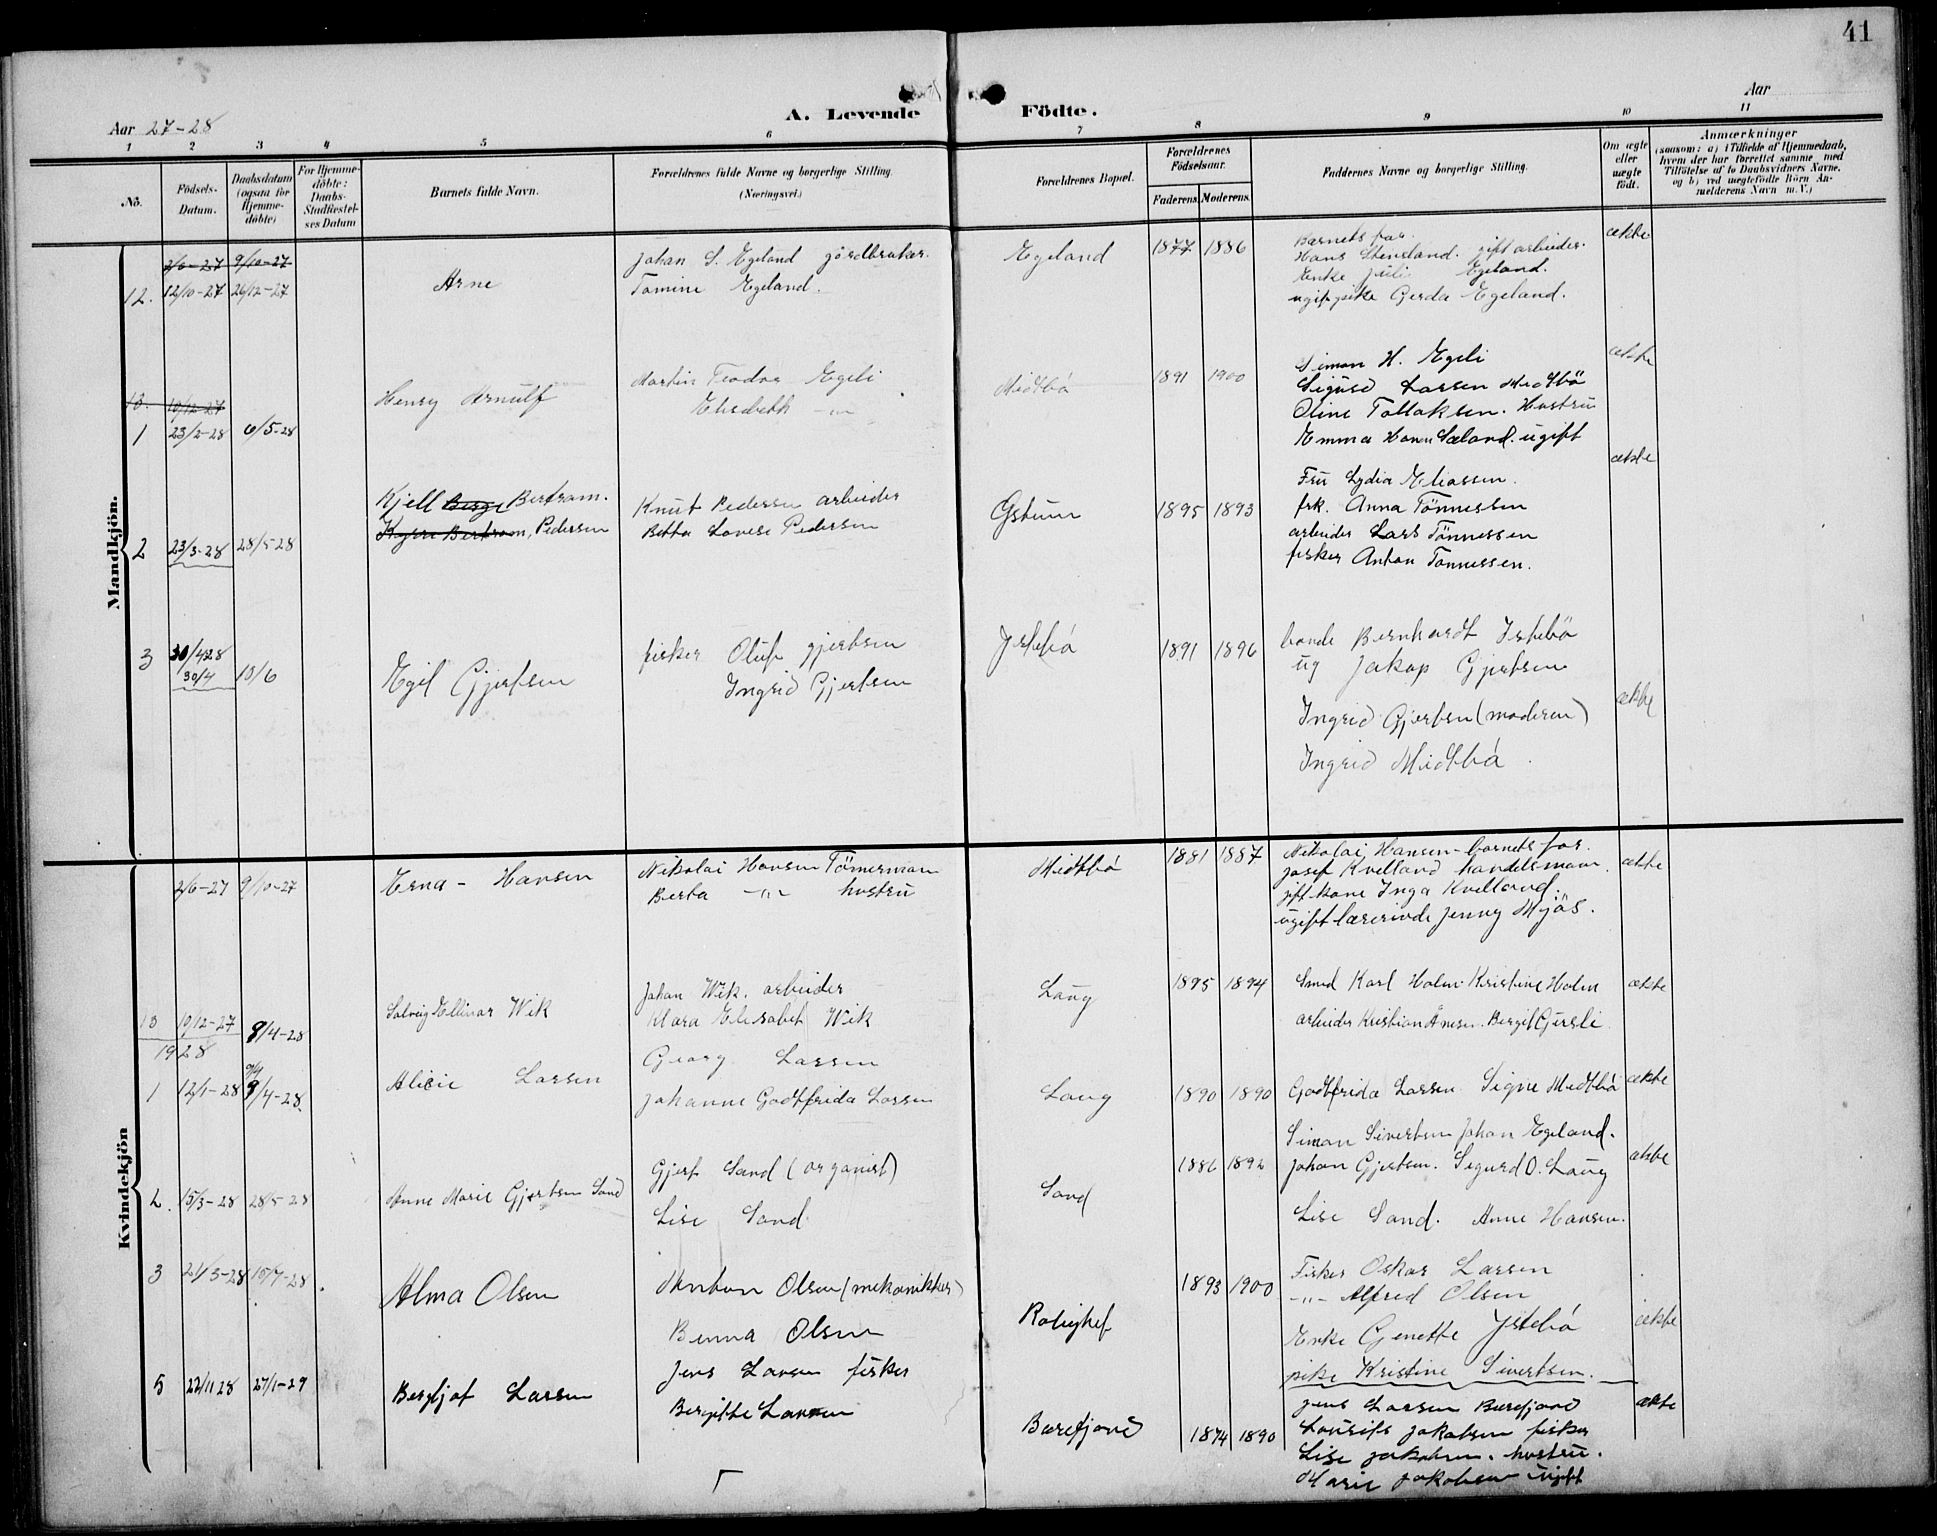 41
Aar 27-28
A. Levende Födte.
Aar
1 2 3 4 5 6 7 8 9 10 11
No.
Födsels-Datum.
Daabsdatum (ogsaa for Hjemme-döbte)
For Hjemme-döbte: Daabs-Stadfæstel-ses Datum
Barnets fulde Navn.
Forældrenes fulde Navne og borgerlige Stilling. (Næringsvei.)
Forældrenes Bopæl.
Forældrenes Födselsaar.
Faderens. Moderens.
Faddernes Navne og borgerlige Stilling.
Om ægte eller uægte födt.
Anmærkninger
(saasom: a) i Tilfælde af Hjemmedaab, hvem der har forrettet samme, med Tilföielse af to Daabsvidners Navne, og b) ved uægtefödte Börn An-melderens Navn m. V.)
Mandkjön.
2/6-27 9/10-27
12. 12/10-27 26/12-27
Arne
Johan S. Egeland gårdbruker.
Tomine Egeland.
Egeland
1877 1886
Barnets far.
Hans Stensland. gift arbeider.
Enke Juli Egeland.
ugift pike Gerda Egeland.
ækte
13. 10/12-27
1 23/2-28 6/5-28
Henry Arnulf
Martin Teodor Egeli
Elisabeth -"-
Midtbö
1891 1900
Simon H. Egeli
Sigurd Larsen Midtbö
Oline Tollaksen. Hustru
Emma Hanna Sæland. ugift
ækte
2 23/3-28 28/5-28
Kjell Berge Bertram.
Bertram, Pedersen
Knut Pedersen arbeider
Betta Lovise Pedersen
1895 1893
Fru Lydia Eliassen.
frk. Anna Tönnessen
arbeider Lars Tönnessen
fisker Anton Tönnessen.
ækte
3 30/4 28
30/4 10/6
Egil Gjertsen
fisker Oluf Gjertsen
Ingrid Gjertsen
Ystebö
1891 1896
bonde Bernhardt Istebö
ug Jakop Gjertsen
Ingrid Gjertsen (moderen)
Ingrid Midtbö.
ækte
Kvindekjön
2/6-27 9/10-27
Erna - Hansen
Nikolai Hansen Tömerman
Berta -"- hustru
Midtbö
1881 1887
Nikolai Hansen - barnets far.
Josef Kvelland handelsmann.
gift kone Inga Kvelland.
ugift lærerinde Jenny Mjös.
ækte
13 10/12-27 8/4-28
Solveig Ellinor Wik
Johan Wik. arbeider
Klara Elisabet Wik
Laug
1895 1894
Smed Karl Holm Kristine Holm
arbeider Kristian Ånesen. Bergit Gjersli
ækte
1928
9/4
1 12/1-28 9/4-28.
Alicie Larsen
Georg Larsen
Johanne Godtfrida Larsen
Laug
1890 1890
Godtfrida Larsen Signe Midtbö
Simon Sivertsen Johan Egeland.
ækte
2. 15/3-28 28/5-28
Anne Marie Gjertsen Sand
Gjert Sand (organist)
Lise Sand
Sand
1886 1892
Johan Gjertsen. Sigurd O. Laug
Lise Sand. Anne Hansen.
ækte
3 21/3-28 15/7-28
Alma Olsen
Anton Olsen (mekanikker)
Benna Olsen
Rolighet
1893 1900
Fisker Oskar Larsen
-"- Alfred Olsen
Enke Gjenette Ystebö
pike Kristine Sivertsen.
ækte
5 22/11 28 27/1-29
Bergljot Larsen
Jens Larsen fisker
Bergitte Larsen
Barefjord
1874 1890
Jens Larsen Barefjord
Laurits Jakobsen fisker
Lise Jakobsen. hustru.
Marie Jakobsen ugift
ækte